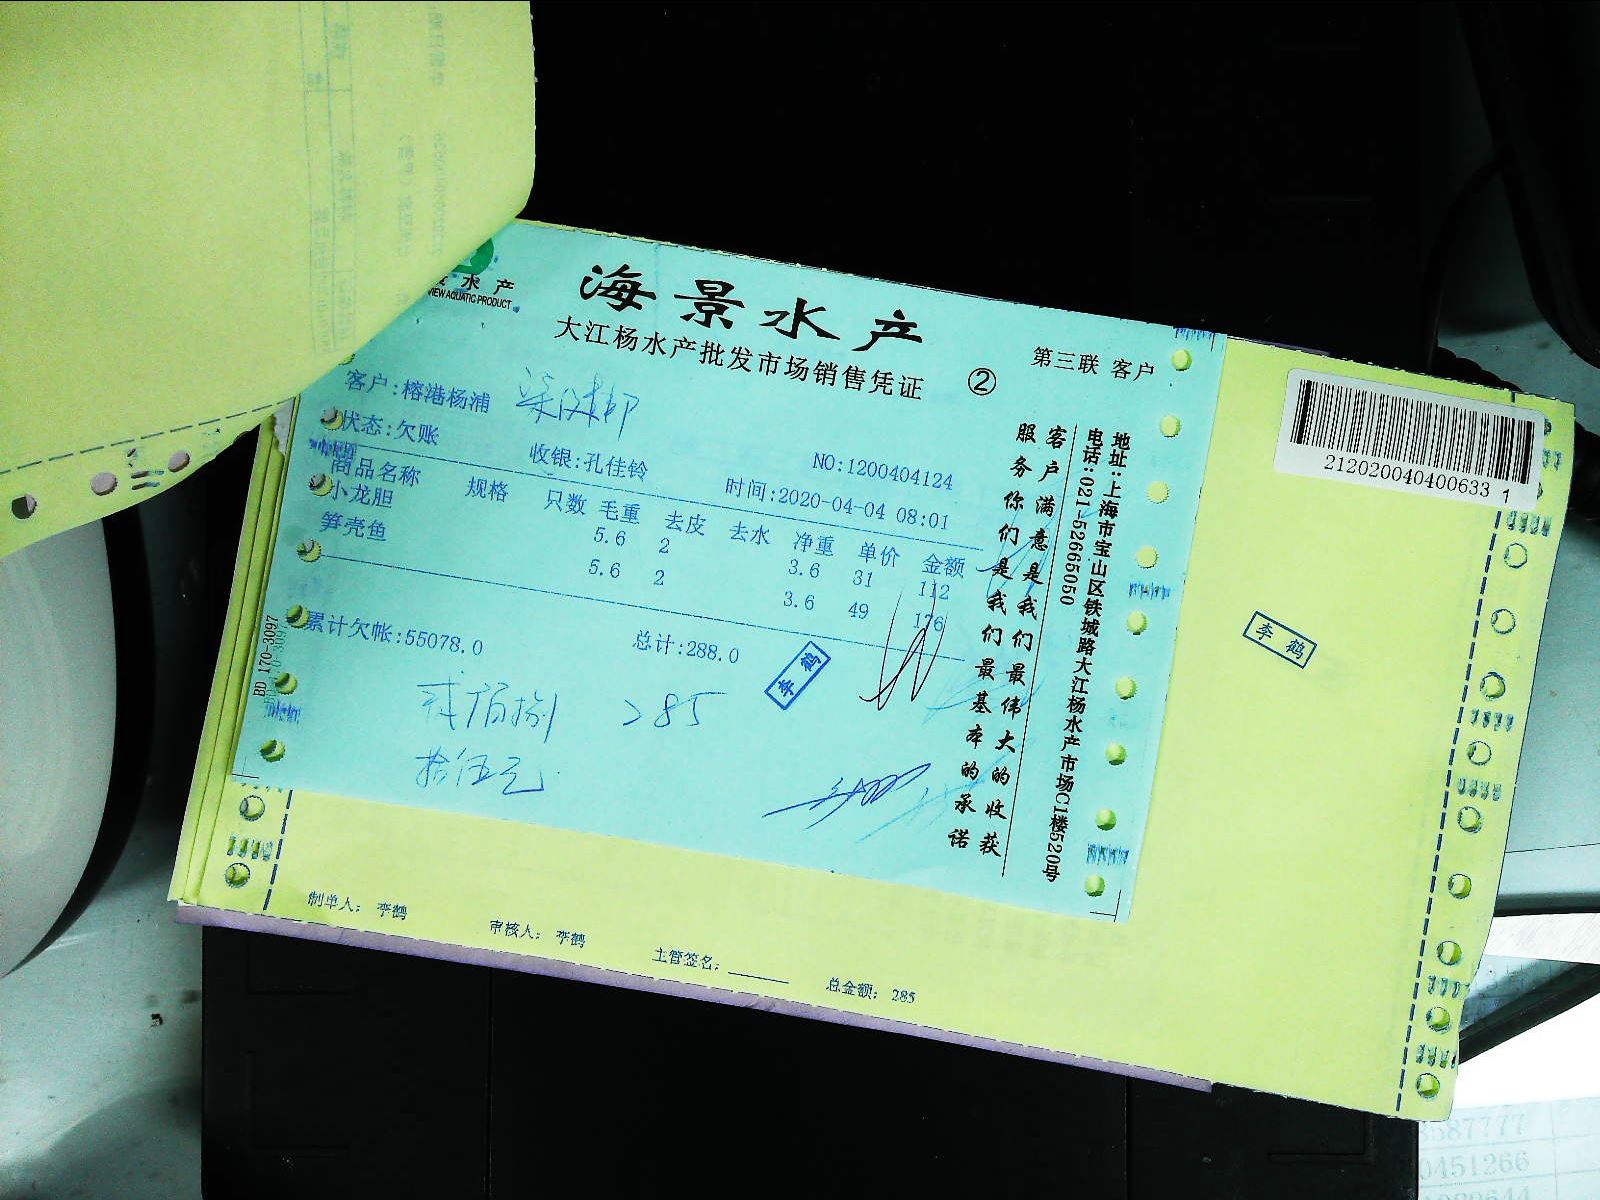 水产
VIEW AQUATIC PRODUCT
海景水产
大江杨水产批发市场销售凭证
②
第三联 客户
客户:榕港杨浦
状态:欠账
收银:孔佳铃
NO:1200404124
时间:2020-04-04 08:01
商品名称 规格 只数 毛重 去皮 去水 净重 单价 金额
小龙胆 5.6 2 3.6 31 112
笋壳鱼 5.6 2 3.6 49 176
累计欠帐:55078.0
总计:288.0
李鹤
贰佰捌 285
拾伍元
客户满意是我们最伟大的收获
服务你们是我们最基本的承诺
地址:上海市宝山区铁城路大江杨水产市场C1楼520号
电话:021-52665050
BD 170-3097
212020040400633 1
李鹤
制单人: 李鹤
审核人: 李鹤
主管签名:
总金额: 285
587777
0451266